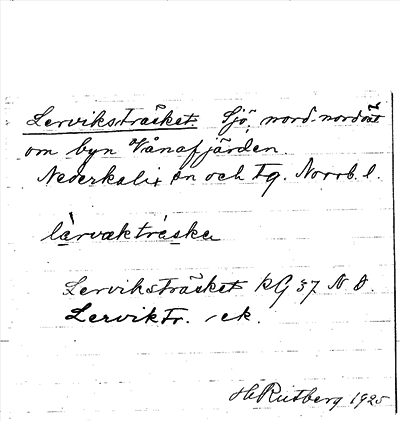 Lerviksträsket. Sjö, nord-nordost
om byn Vånafjärden.
Nederkalix sn och tg. Norrb. l.
lὰrvακtrάska
Lerviksträsket KG 37 N D.
Lerviktr. -ek.
H Rutberg 1925